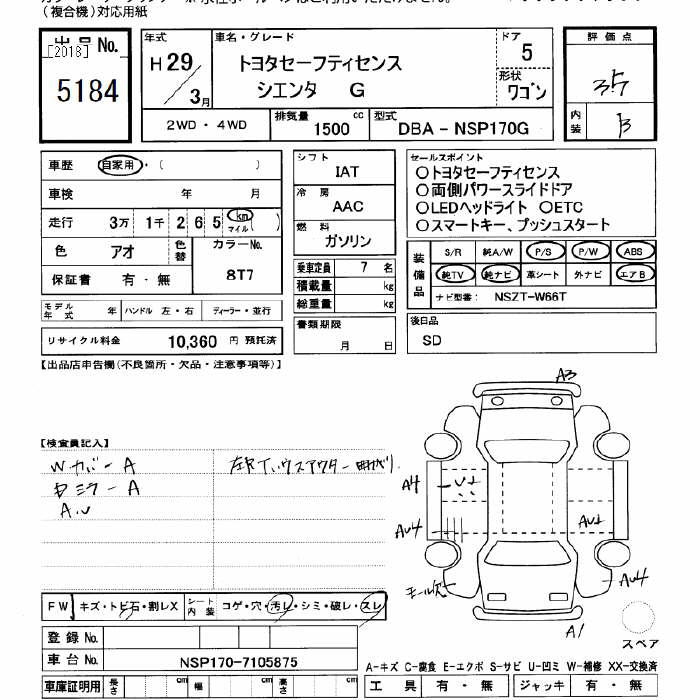 (複合機)対応用紙
出品No.
[2018]
5184
年式
H29/3月
車名・グレード
トヨタセーフティセンス
シエンタ G
ドア
5
形状
ワゴン
評価点
内装
B
2WD・4WD
排気量
1500 cc
型式
DBA-NSP170G
車歴 自家用・( )
車検 年 月
走行 3万 1千 2 6 5 km マイル( )
色 アオ
色替
カラーNo.
8T7
保証書 有・無
モデル年式 年
ハンドル 左・右
ディーラー・並行
リサイクル料金 10,360 円 預託済
シフト
IAT
冷房
AAC
燃料
ガソリン
乗車定員 7 名
積載量 kg
総重量 kg
書類期限
月 日
セールスポイント
○トヨタセーフティセンス
○両側パワースライドドア
○LEDヘッドライト ○ETC
○スマートキー、プッシュスタート
装備品
S/R 純A/W P/S P/W ABS
純TV 純ナビ 革シート 外ナビ エアB
ナビ型番: NSZT-W66T
後日品
SD
【出品店申告欄(不良箇所・欠品・注意事項等)】
【検査員記入】
Wカバー A
ミラー A
A3
A4
AU4
AU4
A1
スペア
FW キズ・トビ石・割レX
シート内装 コゲ・穴・汚レ・シミ・破レ・スレ
登録No.
車台No. NSP170-7105875
車庫証明用 長さ cm 幅 cm 高さ cm
A-キズ C-腐食 E-エクボ S-サビ U-凹ミ W-補修 XX-交換済
工具 有・無 ジャッキ 有・無